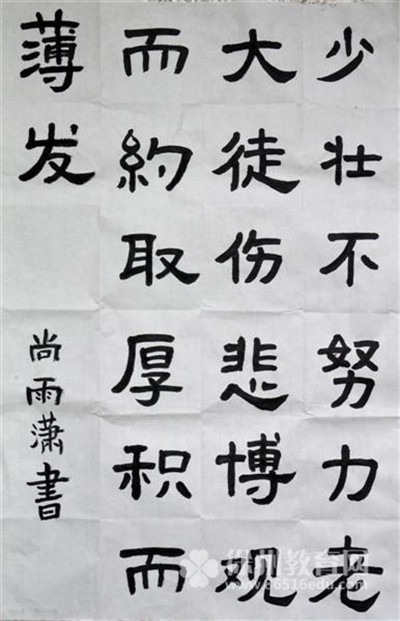 少壮不努力老
大徒伤悲博观
而約取厚积而
薄发
尚雨潇書
徐州教育网
86516edu.com